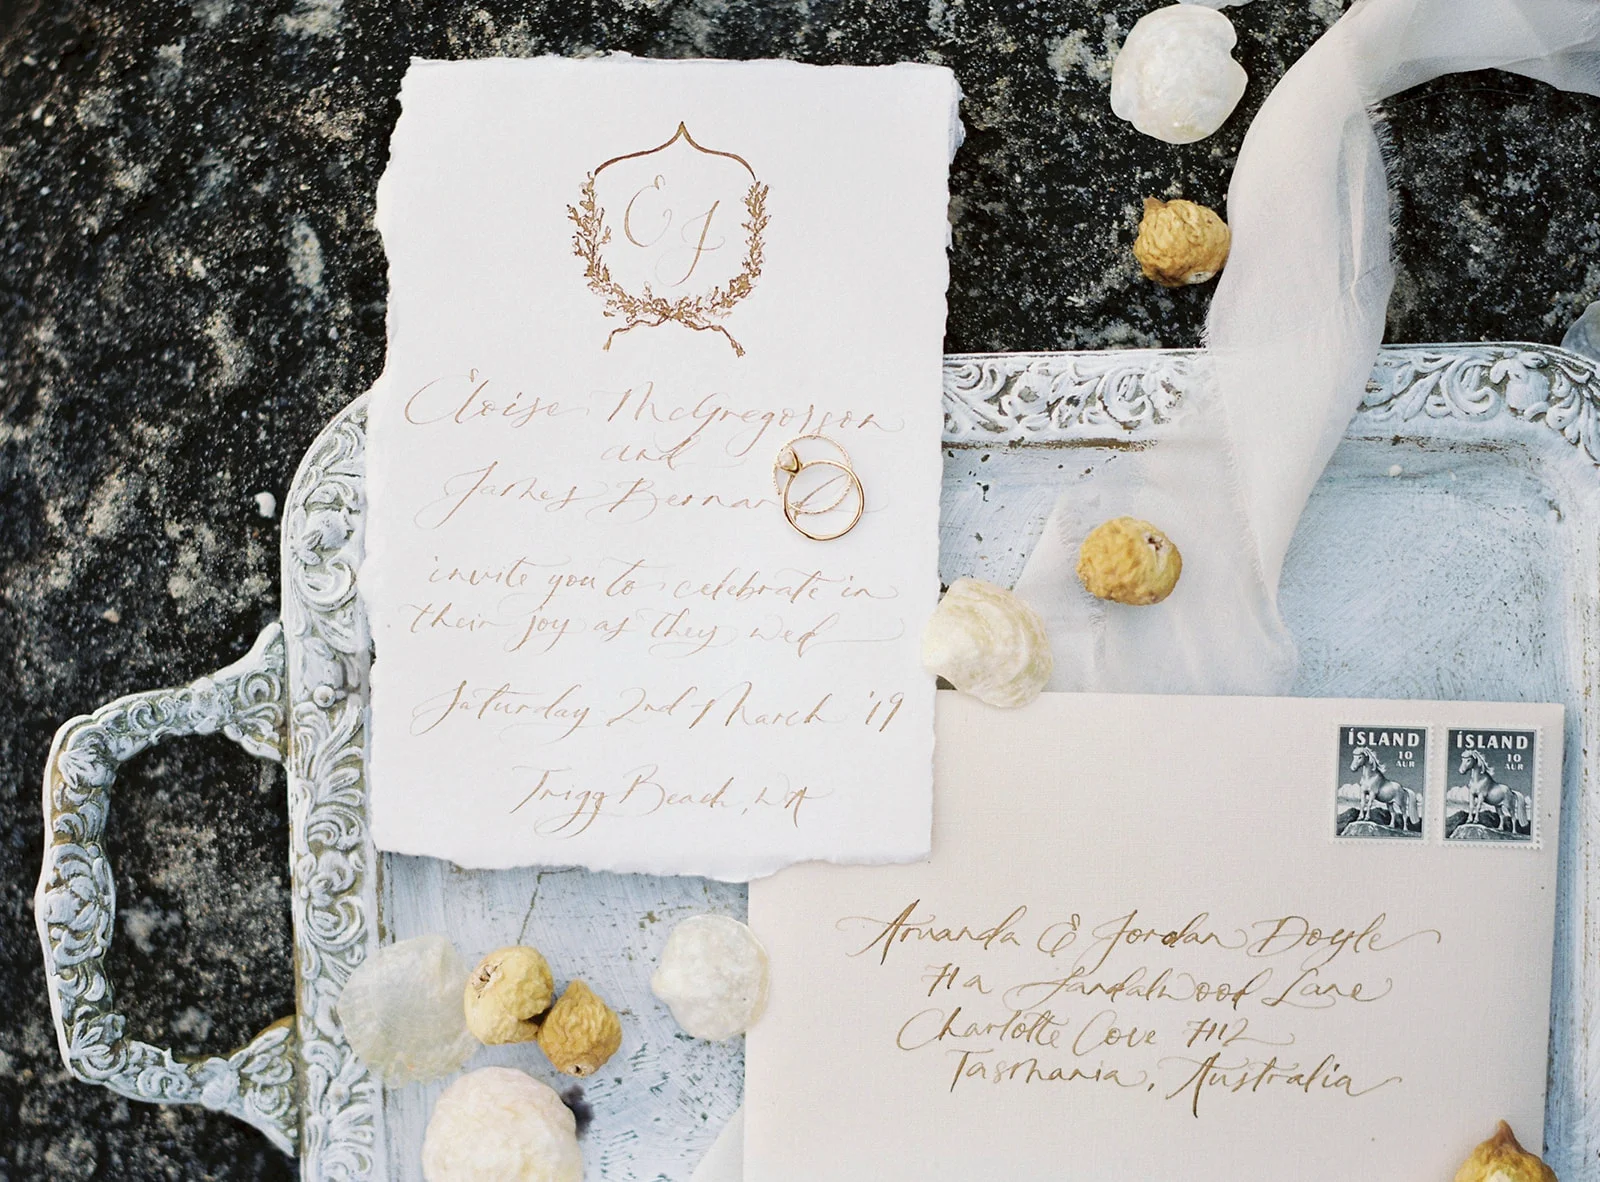 E J
Eloise McGregorson
and
James Bernard
invite you to celebrate in
their joy as they wed
Saturday 2nd March '19
Trigg Beach, WA
ÍSLAND
10
AUR
ÍSLAND
10
AUR
Amanda & Jordan Doyle
71a Sandalwood Lane
Charlotte Cove 7112
Tasmania, Australia